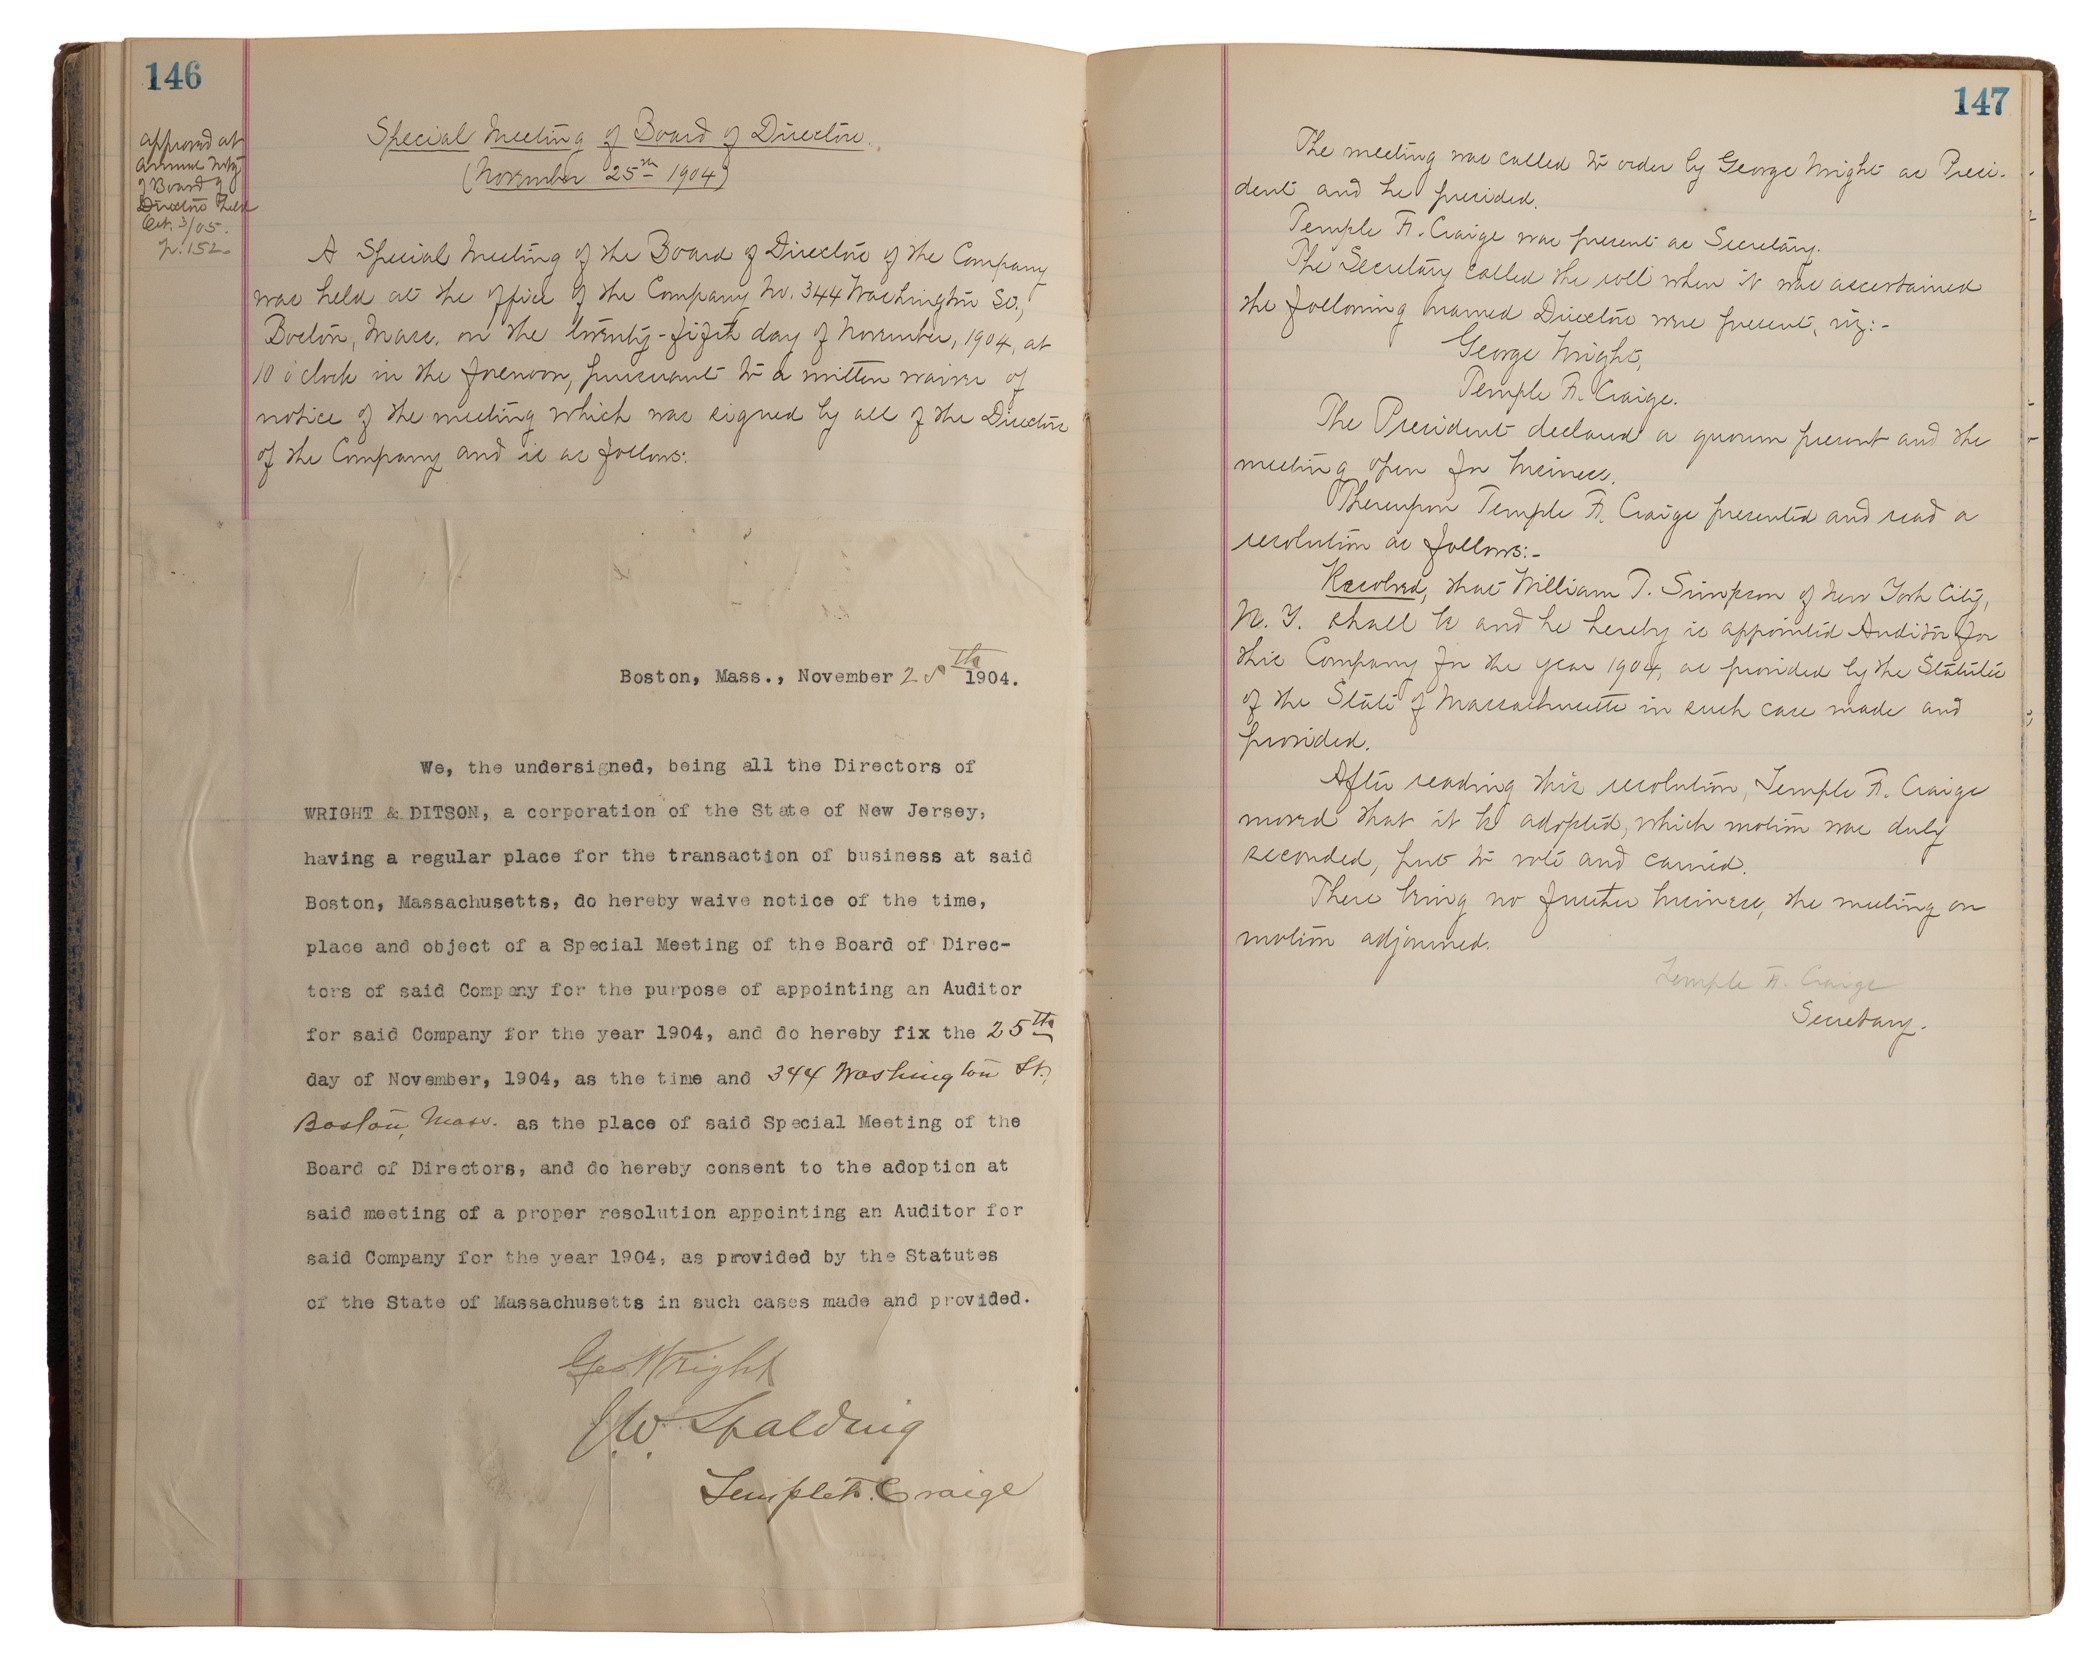 146
approved at
annual mtg
of Board of
Directors held
Oct. 3/05.
p. 152.
Special Meeting of Board of Directors.
(November 25th 1904)
A Special Meeting of the Board of Directors of the Company
was held at the office of the Company No. 344 Washington St.,
Boston, Mass. on the twenty-fifth day of November, 1904, at
10 o'clock in the forenoon, pursuant to a written waiver of
notice of the meeting which was signed by all of the Directors
of the Company and is as follows:
Boston, Mass., November 25th 1904.
We, the undersigned, being all the Directors of
WRIGHT & DITSON, a corporation of the State of New Jersey,
having a regular place for the transaction of business at said
Boston, Massachusetts, do hereby waive notice of the time,
place and object of a Special Meeting of the Board of Direc-
tors of said Company for the purpose of appointing an Auditor
for said Company for the year 1904, and do hereby fix the 25th
day of November, 1904, as the time and 344 Washington St.,
Boston, Mass. as the place of said Special Meeting of the
Board of Directors, and do hereby consent to the adoption at
said meeting of a proper resolution appointing an Auditor for
said Company for the year 1904, as provided by the Statutes
of the State of Massachusetts in such cases made and provided.
Geo Wright
J. W. Spalding
Temple F. Craige
147
The meeting was called to order by George Wright as Presi-
dent and he presided.
Temple F. Craige was present as Secretary.
The Secretary called the roll when it was ascertained
the following named Directors were present, viz:-
George Wright,
Temple F. Craige.
The President declared a quorum present and the
meeting open for business.
Thereupon Temple F. Craige presented and read a
resolution as follows:-
Resolved, that William T. Simpson of New York City,
N. Y. shall be and he hereby is appointed Auditor for
this Company for the year 1904, as provided by the Statutes
of the State of Massachusetts in such case made and
provided.
After reading this resolution, Temple F. Craige
moved that it be adopted, which motion was duly
seconded, put to vote and carried.
There being no further business, the meeting on
motion adjourned.
Temple F. Craige
Secretary.